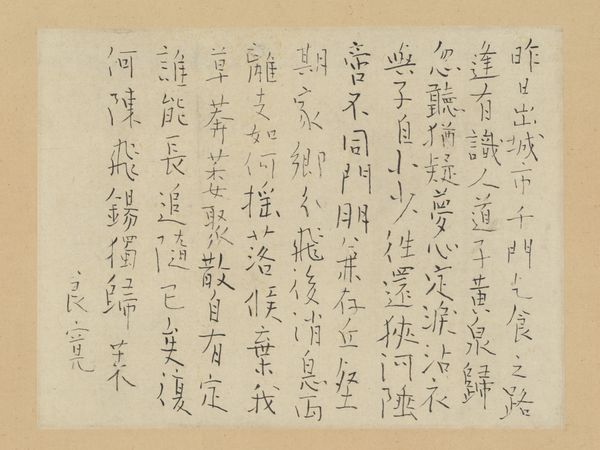 昨日出城市千門乞食之路
逢有識人道子黄泉歸
忽聽猶疑夢心定淚沾衣
與子自小少往還狹河陲
啻不同門朋兼存丘壑
期家鄉分飛後消息両
離支如何揺落候棄我
草莽聚散自有定
誰能長追隨已矣復
何陳飛錫獨歸来
良寛